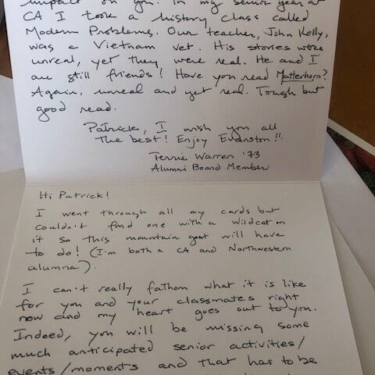 impact on you. In my senior year at
CA I took a history class called
Modern Problems. Our teacher, John Kelly,
was a Vietnam vet. His stories were
unreal, yet they were real. He and I
are still friends! Have you read Matterhorn?
Again, unreal and yet real. Tough but
good read.
Patrick, I wish you all
the best! Enjoy Evanston!!
Terrie Warren '73
Alumni Board Member
Hi Patrick!
I went through all my cards but
couldn't find one with a Wildcat on
it so this mountain goat will have
to do! (I'm both a CA and Northwestern
alumna).
I can't really fathom what it is like
for you and your classmates right
now and my heart goes out to you.
Indeed, you will be missing some
much anticipated senior activities/
events/moments and that has to be